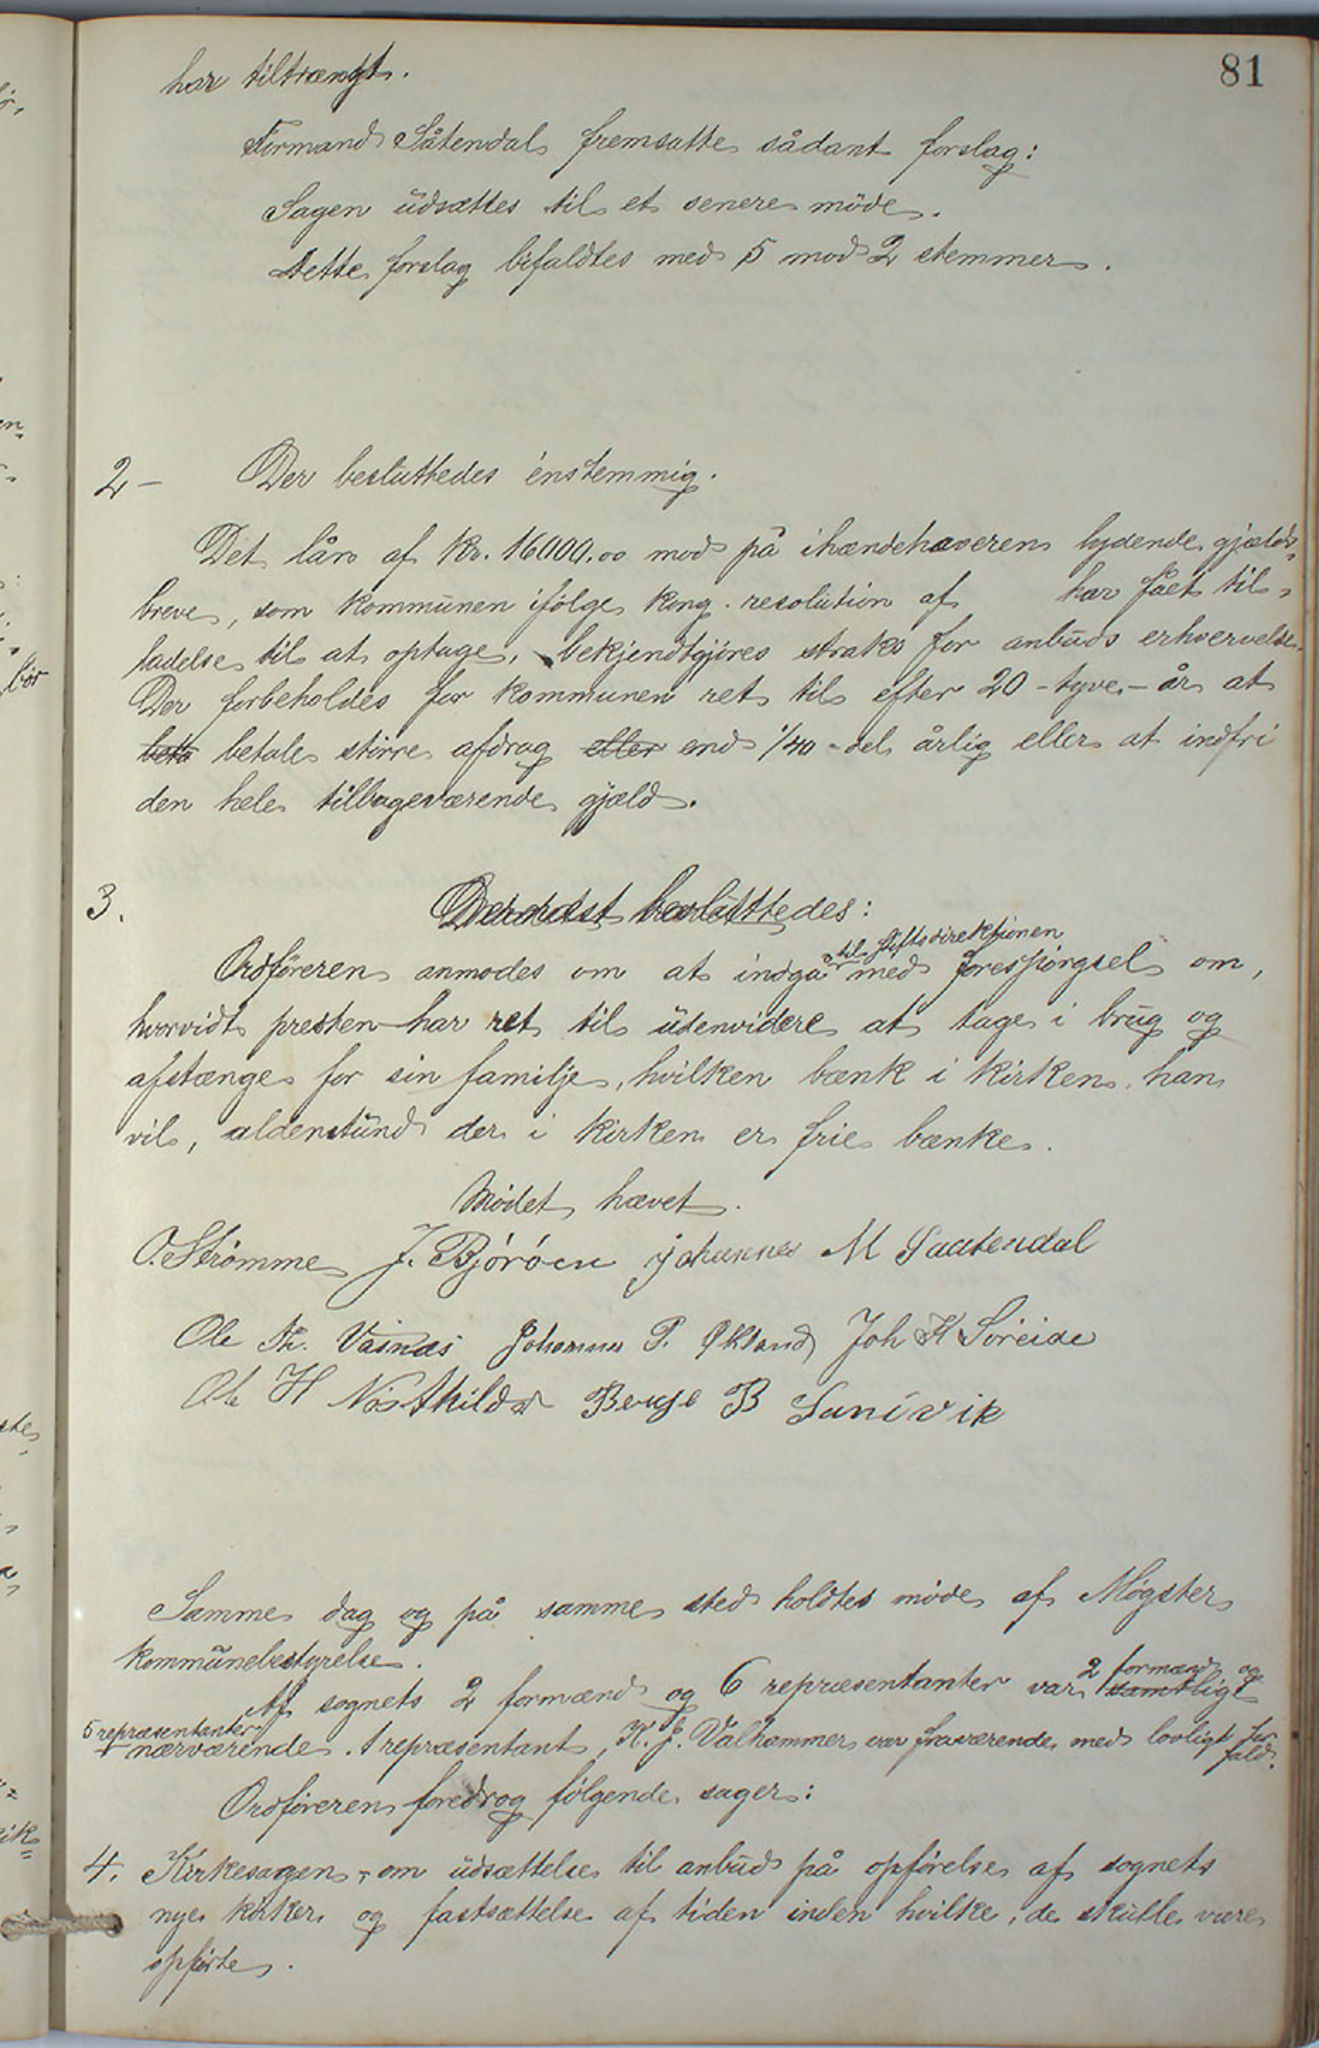 81
har tiltrængt.
Formand Såtendal fremsatte sådant forslag:
Sagen udsættes til et senere möde.
Dette forslag bifaldtes med 5 mod 2 stemmer.
2 - Der besluttedes énstemmig.
Det lån af Kr. 16000.00 mod på ihændehaveren lydende gjælds-
breve, som kommunen ifölge kong. resolution af har fået til-
ladelse til at optage, bekjendtgjöres straks for anbuds erhvervelse.
Der forbeholdes for kommunen ret til efter 20 - tyve - år at
beta betale större afdrag eller end 1/40-del årlig eller at indfri
den hele tilbageværende gjæld.
3. Dernæst besluttedes:
til stiftsdirektionen
Ordföreren anmodes om at indgå med forespörgsel om,
hvorvidt presten har ret til udenvidere at tage i brug og
afstænge for sin familje, hvilken bænk i kirken han
vil, aldenstund der i kirken er frie bænke.
Mödet hævet.
O. Strømme J. Bjørøen Johannes M Saatendal
Ole Th. Vasnæs Johannes P. Økland Joh H Söreide
Ole H Nöstkild Berge B Lunivik
Samme dag og på samme sted holdtes möde af Møgster
kommunebestyrelse.
2 formænd og
Af sognets 2 formænd og 6 repræsentanter var samtlige
5 repræsentanter
nærværende. 1 repræsentant, K. J. Valhammer var fraværende med lovligt for-
fald.
Ordföreren foredrog fölgende sager:
4. Kirkesagen, - om udsættelse til anbud på opförelse af sognets
nye kirker og fastsættelse af tiden inden hvilke, de skulle være
opförte.